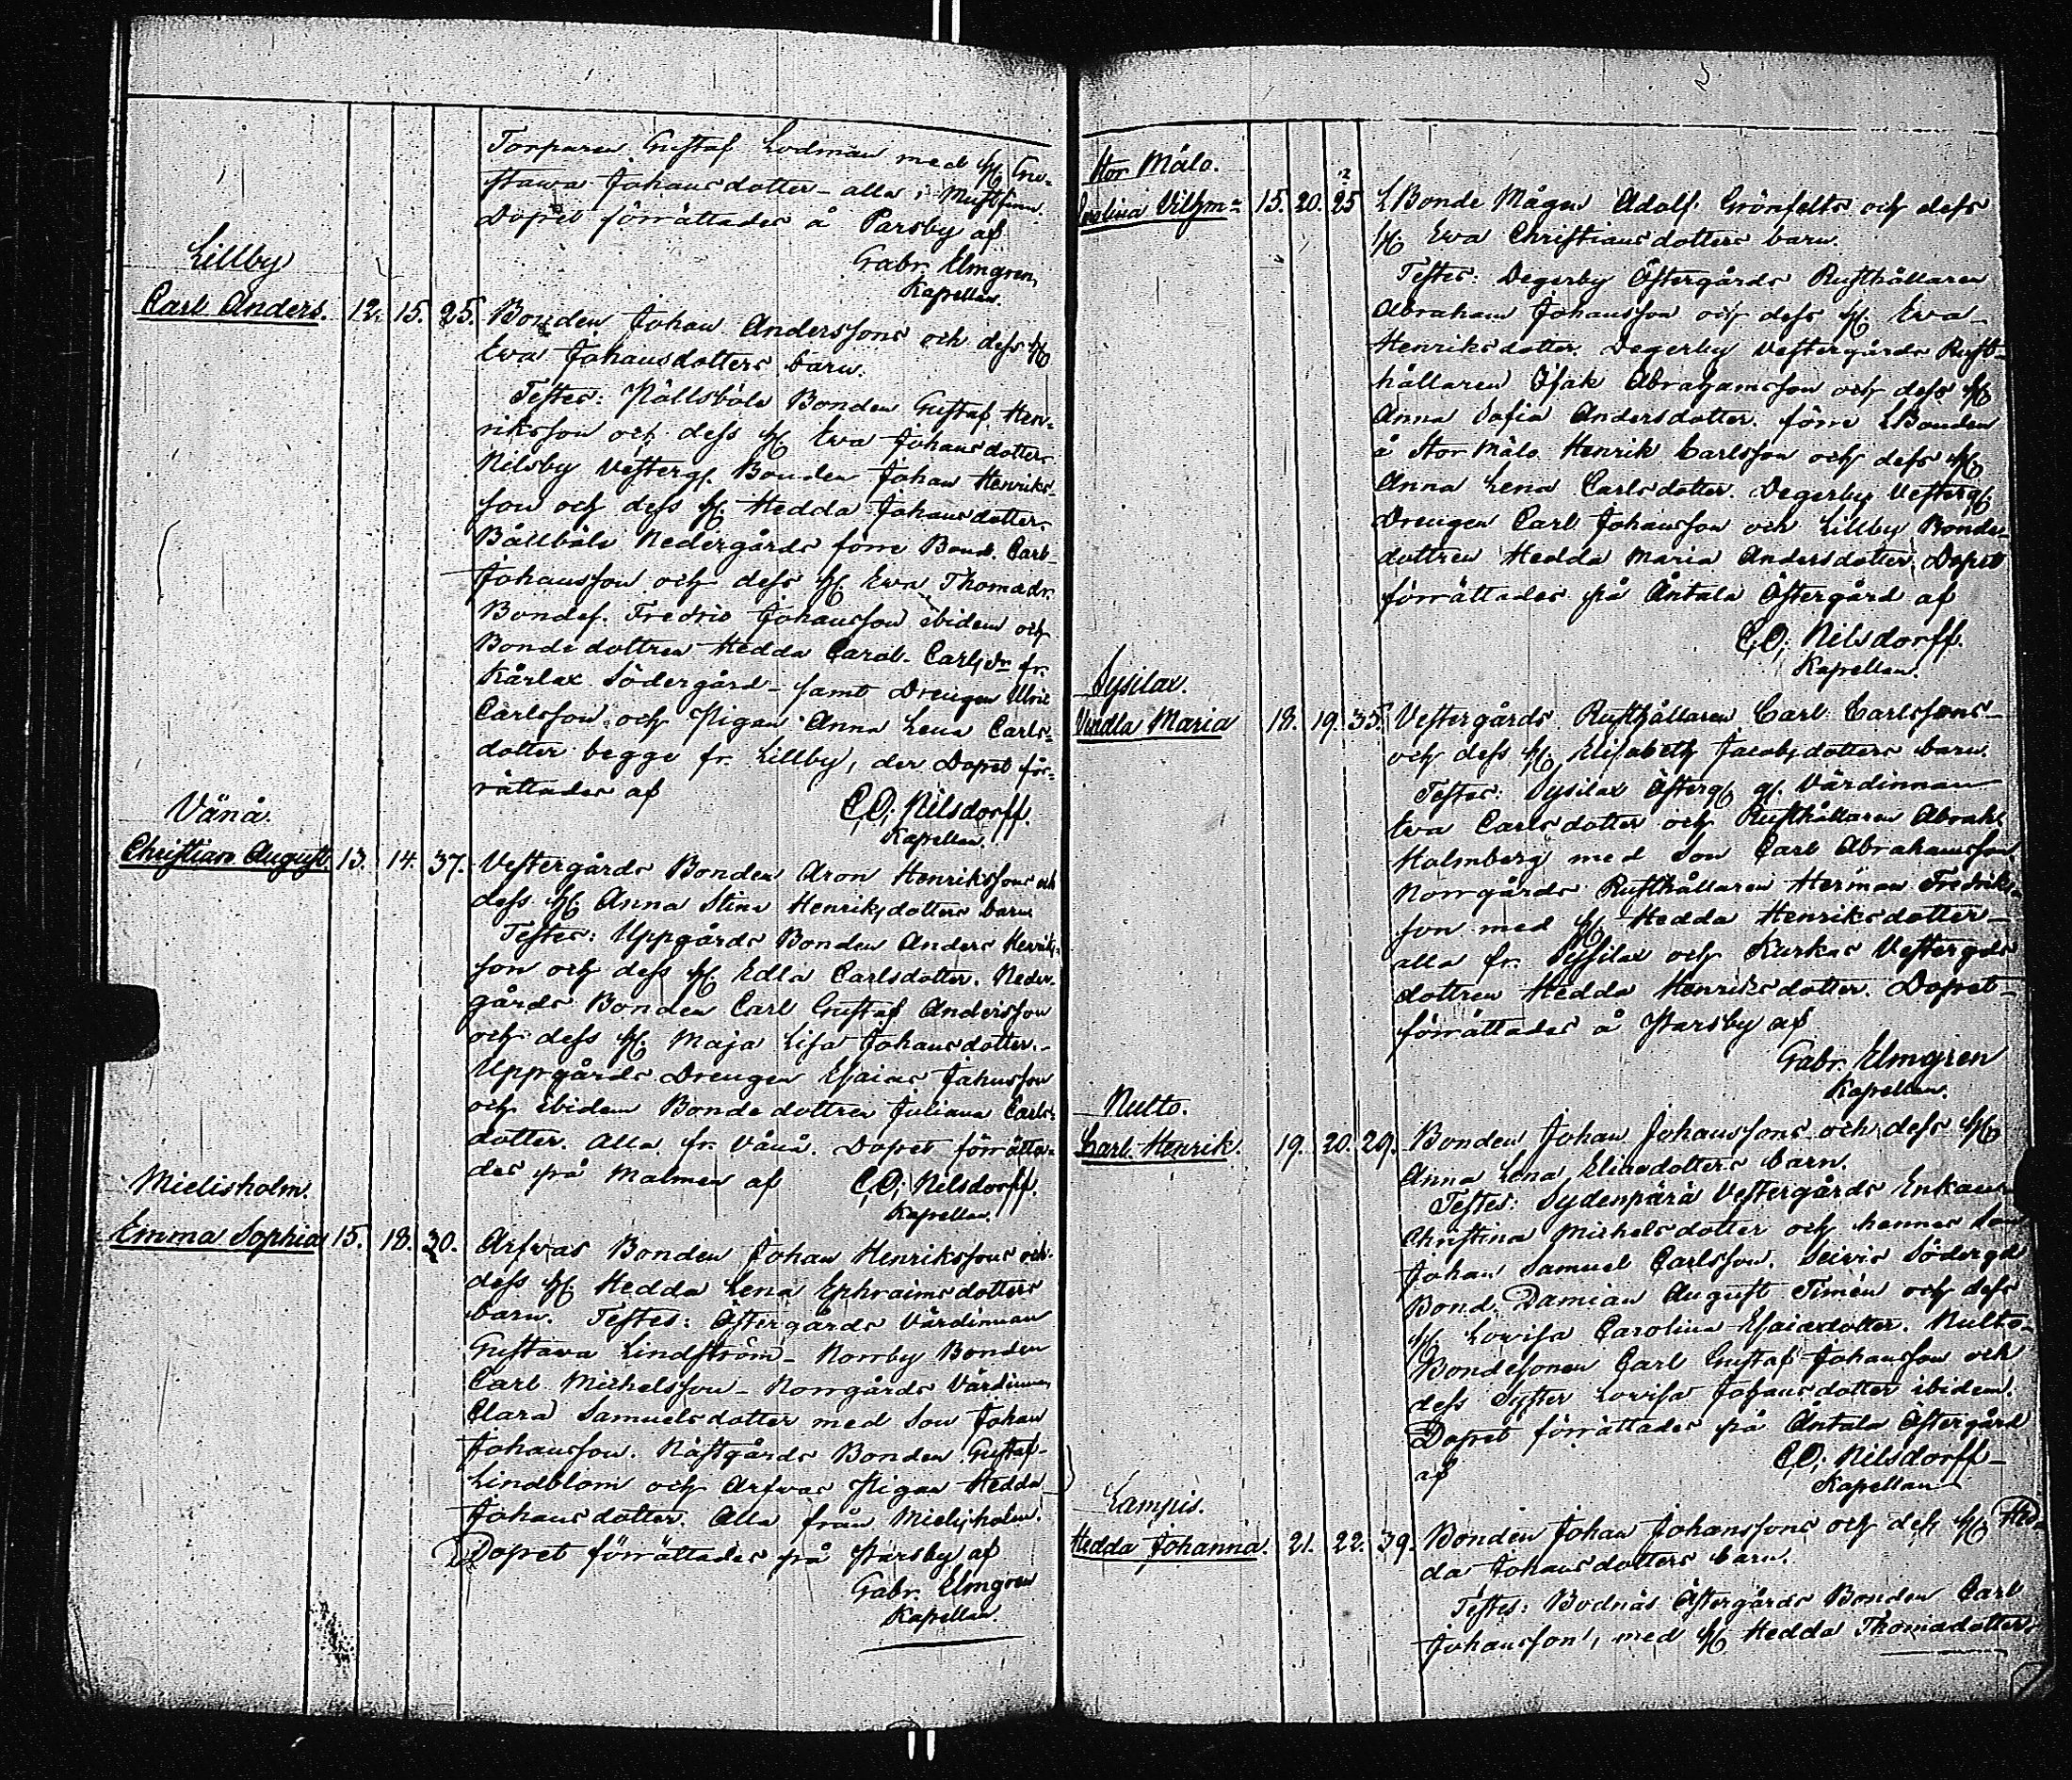 Torparen Gustaf Lodman med H. Gu-
stava Johansdotter - alla i
Dopet förrättades å Parsby af
Gabr. Elmgren,
Kapellan.
Lillby
Carl Anders. 12. 15. 25. Bonden Johan Anderssons och dess H.
Eva Johansdotters barn.
Testes: Pällsböle Bonden Gustaf Hen-
riksson och dess H. Eva Johansdotter
Nilsby Vesterg. Bonden Johan Henriks-
son och dess H. Hedda Johansdotter.
Bållböle Nedergårds förre Bond. Carl
Johansson och dess H. Eva Thomadr.
Bondes. Fredric Johansson ibidem och
Bondedottren Hedda Carol. Carlsdr fr.
Kårlax Södergård - samt Drengen Ulric
Carlsson och Pigan Anna Lena Carls-
dotter begge fr. Lillby, der Dopet för-
rättades af C,O; Nilsdorff.
Kapellan.
Vånå.
Christian August. 13. 14. 37. Vestergårds Bonden Aron Henrikssons och
dess H. Anna Stina Henriksdotters barn
Testes: Uppgårds Bonden Anders Henriks-
son och dess H. Edla Carlsdotter. Neder-
gårds Bonden Carl Gustaf Andersson
och dess H. Maja Lisa Johansdotter.-
Uppgårds Drengen Esaias Johansson
och ibidem Bondedottren Juliana Carls-
dotter. Alla fr. Vånå. Dopet förrätta-
des på Malmen af C,O; Nilsdorff.
Kapellan.
Mielisholm.
Emma Sophia 15. 18. 30. Arfvas Bonden Johan Henrikssons och
dess H. Hedda Lena Ephraimsdotters
barn. Testes: Östergårds Värdinnan
Gustava Lindström - Norrby Bonden
Carl Michelsson - Norrgårds Värdinnan
Clara Samuelsdotter med Son Johan
Johansson. Nästgårds Bonden Gustaf
Lindblom och Arfvas Pigan Hedda
Johansdotter. Alla från Mielisholm.
Dopet förrättades på Parsby af
Gabr. Elmgren
Kapellan.
Stor Målo.
Evelina Vilhm= 15. 20. 25 LBonde Mågen Adolf Grönfelts och dess
H. Eva Christiansdotters barn.
Testes: Degerby Östergårds Rusthållaren
Abraham Johansson och dess H. Eva
Henriksdotter. Degerby Vestergårds Rust-
hållaren Isak Abrahamsson och dess H.
Anna Sofia Andersdotter. förre LBonden
å Stor Målo Henrik Carlsson och dess H.
Anna Lena Carlsdotter. Degerby Vesterg.
Drengen Carl Johansson och Lillby Bonde-
dottren Hedda Maria Andersdotter. Dopet
förrättades på Antala Östergård af
C,O; Nilsdorff.
Kapellan.
Sysilax.
Vendla Maria 18. 19. 35. Vestergårds Rusthållaren Carl Carlssons
och dess H. Elisabeth Jacobsdotters barn.
Testes: Sysilax Österg. g. Värdinnan
Eva Carlsdotter och Rusthållaren Abrah.
Holmberg med Son Carl Abrahamsson.
Norrgårds Rusthållaren Herman Fredriks-
son med H. Hedda Henriksdotter -
alla fr. Syssilax och Kurkas Vestergds
dottren Hedda Henriksdotter. Dopet
förrättades å Parsby af
Gabr. Elmgren
Kapellan.
Nulto.
Carl Henrik. 19. 20. 29. Bonden Johan Johanssons och dess H.
Anna Lena Eliasdotters barn.
Testes: Sydenpärä Vestergårds Enkan
Christina Michelsdotter och hennes Son
Johan Samuel Carlsson. Seivis Södergds
Bond. Damian August Timén och dess
H. Lovisa Carolina Esaiasdotter. Nulto
Bondesonen Carl Gustaf Johansson och
dess Syster Lovisa Johansdotter ibidem.
Dopet förrättades på Antala Östergård
af C,O; Nilsdorff
Kapellan
Lampis.
Hedda Johanna. 21. 22. 39. Bonden Johan Johanssons och dess H. Hed-
da Johansdotters barn.
Testes: Bodnäs Östergårds Bonden Carl
Johansson, med H. Hedda Thomadotter.